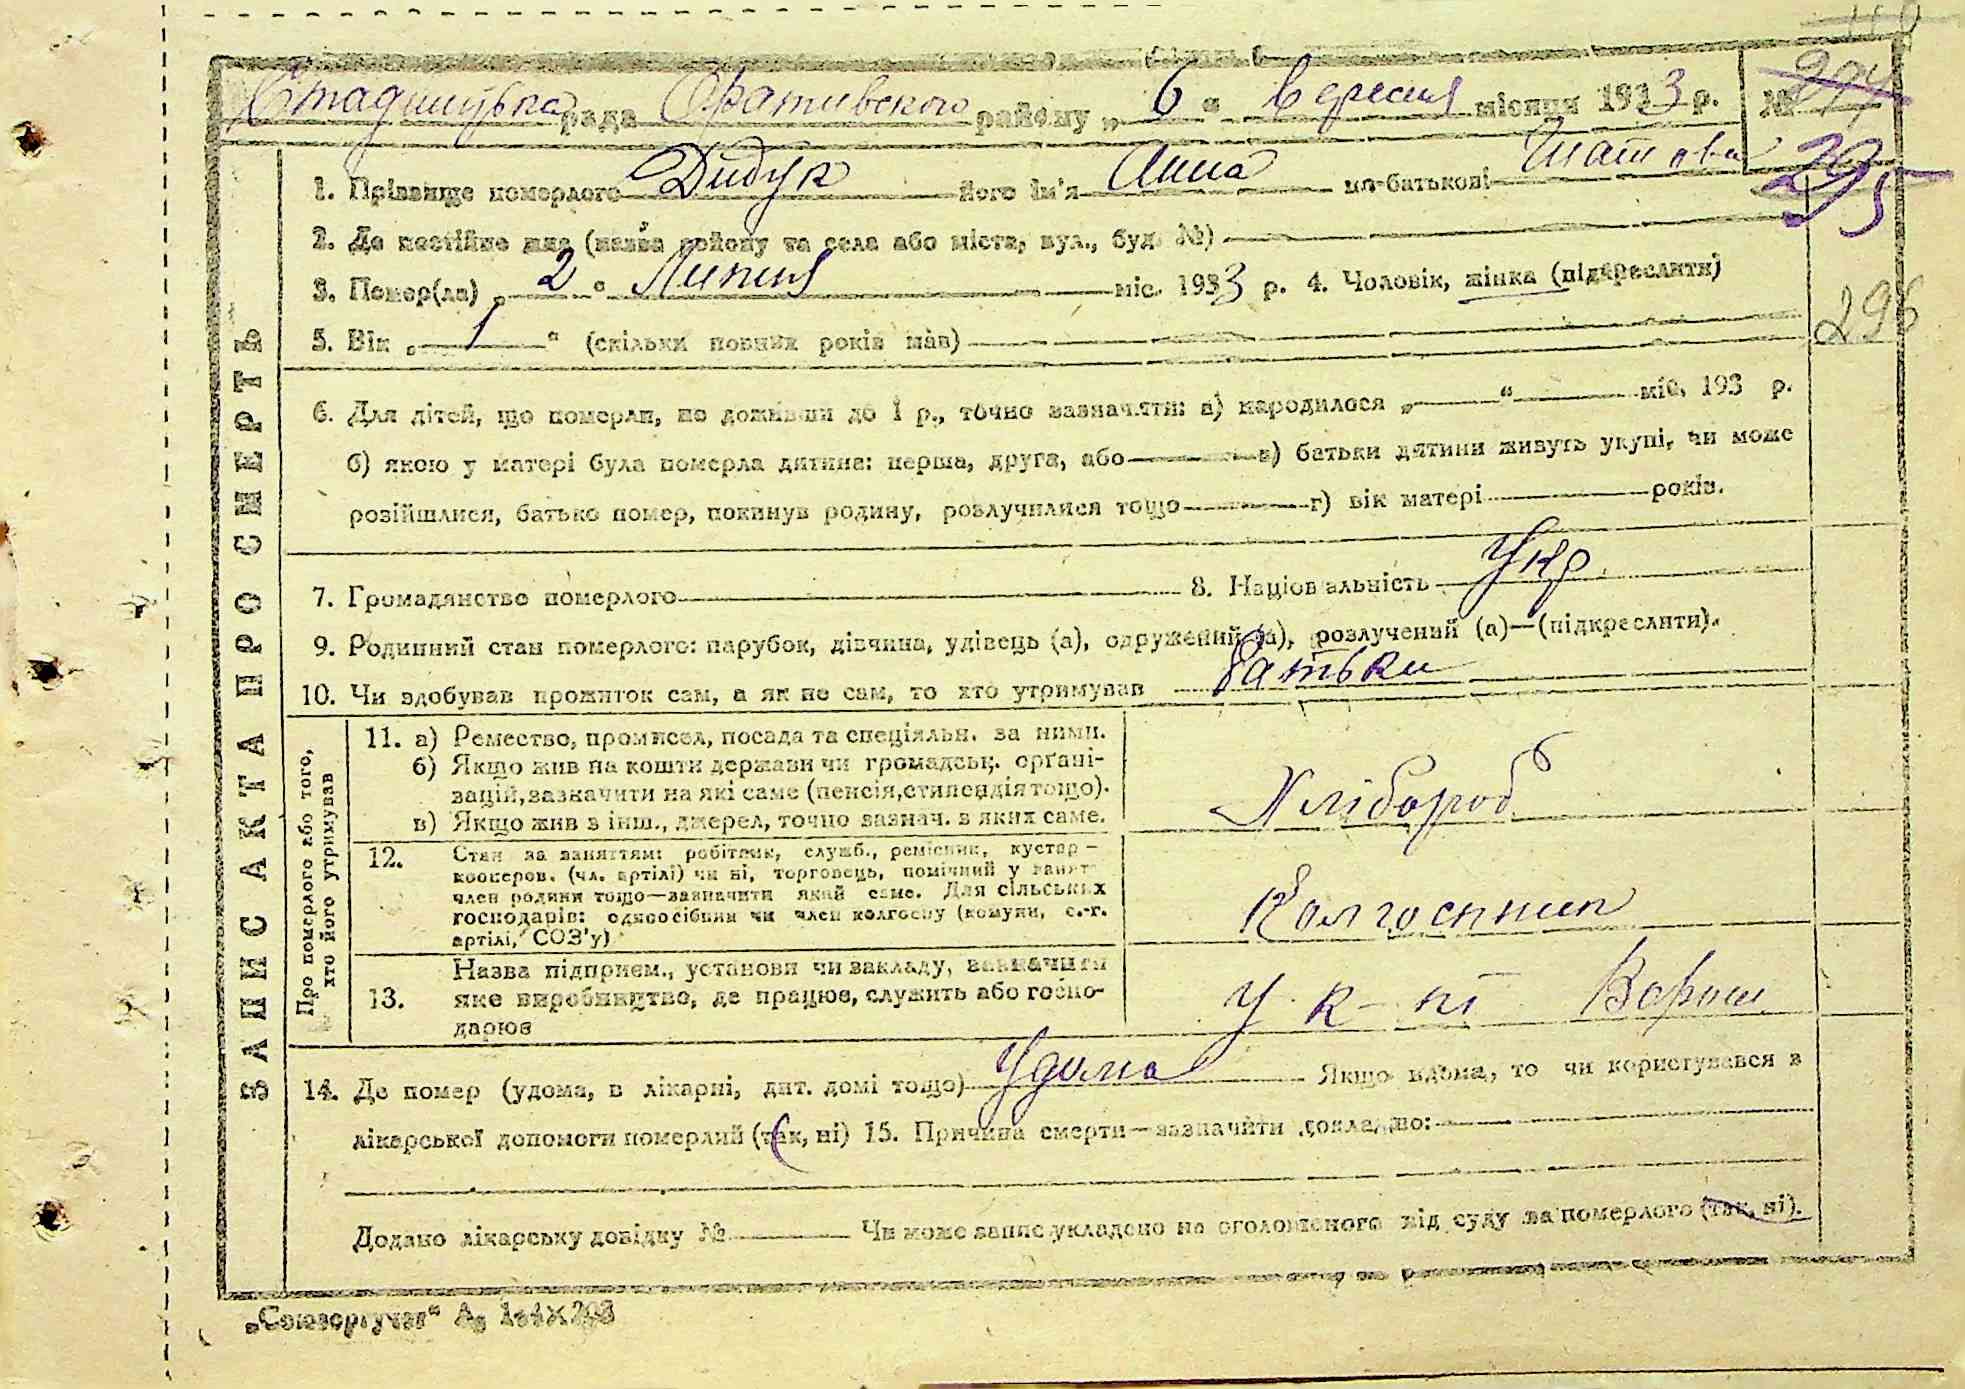 рада Оратівського району „ 6 “ вересня місяця 1933 р. №
295
1. Прізвище померлого Дидук його ім'я Анна по-батькові
2. Де постійно жив (назва району та села або міста, вул., буд. №)
3. Помер(ла) „ 2 “ Липня міс. 1933 р. 4. Чоловік, жінка (підкреслити)
296
5. Вік „ 1 “ (скільки повних років мав)
6. Для дітей, що померли, не доживши до 1 р., точно зазначити: а) народилося „ “ міс. 193 р.
б) якою у матері була померла дитина: перша, друга, або в) батьки дитини живуть укупі, чи може
розійшлися, батько помер, покинув родину, розлучилися тощо г) вік матері років.
7. Громадянство померлого 8. Національність Укр.
9. Родинний стан померлого: парубок, дівчина, удівець (а), одружений (а), розлучений (а)—(підкреслити).
10. Чи здобував прожиток сам, а як не сам, то хто утримував батьки
ЗАПИС АКТА ПРО СМЕРТЬ
Про померлого або того, хто його утримував
11. а) Ремество, промисел, посада та спеціяльн. за ними.
б) Якщо жив на кошти держави чи громадськ. органі-
зацій, зазначити на які саме (пенсія, стипендія тощо).
в) Якщо жив з інш., джерел, точно зазнач. з яких саме.
Хлібороб
12. Стан за заняттям: робітник, служб., ремісник, кустар—
кооперов. (чл. артілі) чи ні, торговець, помічний у занят.
член родини тощо—зазначити який саме. Для сільських
господарів: одноосібник чи член колгоспу (комуни, с.-г.
артілі, СОЗ'у)
Колгоспник
13. Назва підприєм., установи чи закладу, зазначити
яке виробництво, де працює, служить або госпо-
дарює
У к-пі Ворош
14. Де помер (удома, в лікарні, дит. домі тощо) Удома Якщо вдома, то чи користувався з
лікарської допомоги померлий (так, ні) 15. Причина смерти—зазначити докладно:
Додано лікарську довідку № Чи може запис укладено на оголошеного від суду за померлого (так, ні).
„Союзоргучет“